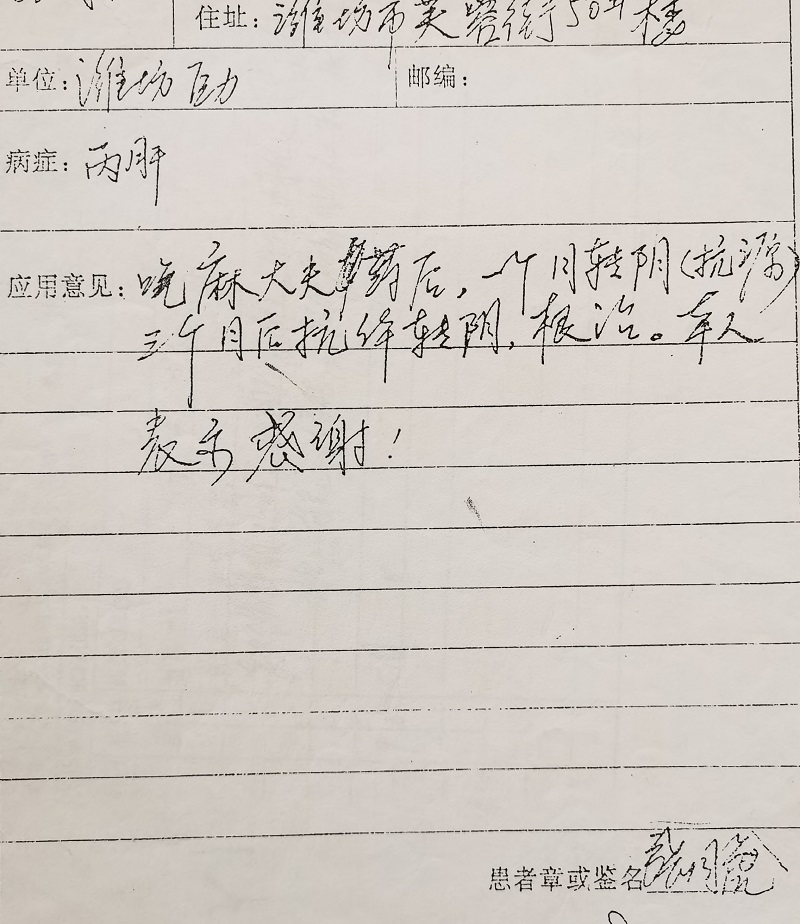 住址：潍坊市芙蓉街50号楼
单位：潍坊巨力 邮编：
病症：丙肝
应用意见：吃麻大夫药后，一个月转阴（抗源）
三个月后抗体转阴，根治。本人
表示感谢！
患者章或鉴名